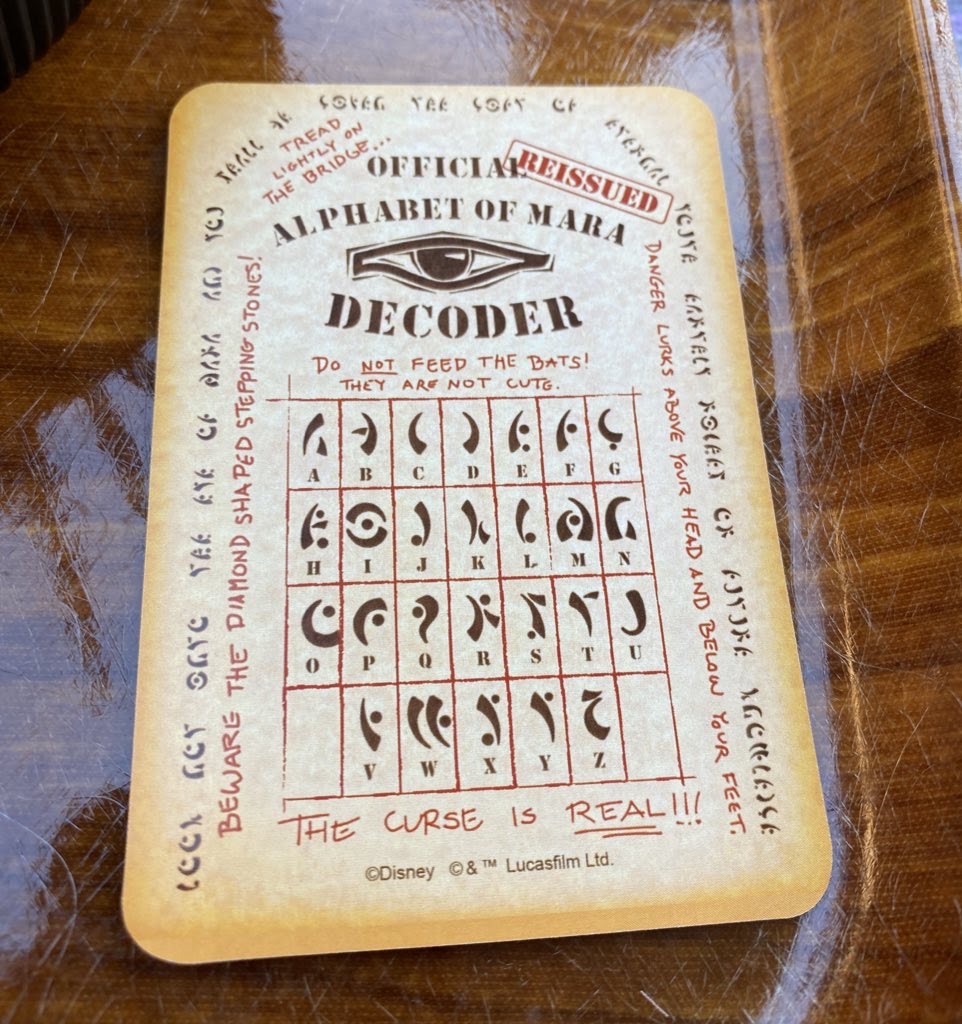 TREAD
LIGHTLY ON
THE BRIDGE...
OFFICIAL
REISSUED
ALPHABET OF MARA
DECODER
DO NOT FEED THE BATS!
THEY ARE NOT CUTE.
A B C D E F G
H I J K L M N
O P Q R S T U
V W X Y Z
THE CURSE IS REAL!!!
©Disney ©&™ Lucasfilm Ltd.
BEWARE THE DIAMOND SHAPED STEPPING STONES!
DANGER LURKS ABOVE YOUR HEAD AND BELOW YOUR FEET.